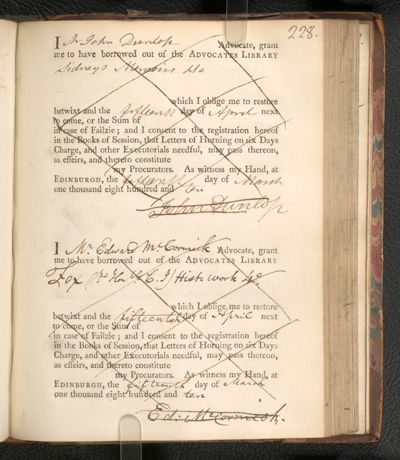 228.
I Mr John Dunlop Advocate, grant
me to have borrowed out of the ADVOCATES LIBRARY
Sidneys Memoirs 4to
which I oblige me to restore
betwixt and the fifteenth day of April next
to come, or the Sum of
in case of Failzie; and I consent to the registration hereof
in the Books of Session, that Letters of Horning on six Days
Charge, and other Executorials needful, may pass thereon,
as effeirs, and thereto constitute
my Procurators. As witness my Hand, at
EDINBURGH, the fifteenth day of March
one thousand eight hundred and ten
John Dunlop
I Mr Edward McCormick Advocate, grant
me to have borrowed out of the ADVOCATES LIBRARY
Fox Hist. work 4o.
which I oblige me to restore
betwixt and the fifteenth day of April next
to come, or the Sum of
in case of Failzie; and I consent to the registration hereof
in the Books of Session, that Letters of Horning on six Days
Charge, and other Executorials needful, may pass thereon,
as effeirs, and thereto constitute
my Procurators. As witness my Hand, at
EDINBURGH, the fifteenth day of March
one thousand eight hundred and ten
Ed: McCormick.